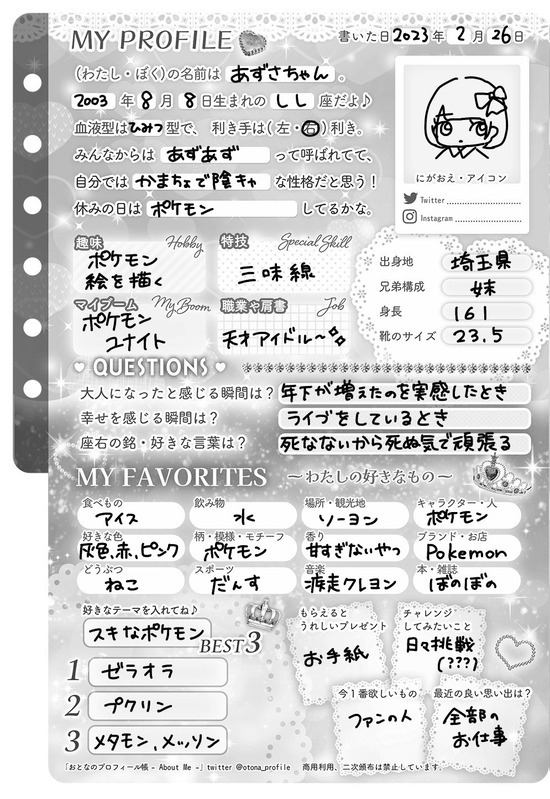 MY PROFILE
書いた日2023年 2月 26日
(わたし・ぼく)の名前は あずさちゃん 。
2003 年 8 月 8 日生まれの しし 座だよ♪
血液型はひみつ型で、 利き手は(左・右)利き。
みんなからは あずあず って呼ばれてて、
自分では かまちょで陰キャ な性格だと思う!
休みの日は ポケモン してるかな。
にがおえ・アイコン
Twitter
Instagram
趣味 Hobby
ポケモン
絵を描く
特技 Special Skill
三味線
マイブーム My Boom
ポケモン
ユナイト
職業や肩書 Job
天才アイドル〜
出身地 埼玉県
兄弟構成 妹
身長 161
靴のサイズ 23.5
QUESTIONS
大人になったと感じる瞬間は? 年下が増えたのを実感したとき
幸せを感じる瞬間は? ライブをしているとき
座右の銘・好きな言葉は? 死なないから死ぬ気で頑張る
MY FAVORITES 〜わたしの好きなもの〜
食べもの 飲み物 場所・観光地 キャラクター・人
アイス 水 ソーヨン ポケモン
好きな色 柄・模様・モチーフ 香り ブランド・お店
灰色、赤、ピンク ポケモン 甘すぎないやつ Pokemon
どうぶつ スポーツ 音楽 本・雑誌
ねこ だんす 渡走クレヨン ぼのぼの
好きなテーマを入れてね♪
スキなポケモン
BEST3
1 ゼラオラ
2 プクリン
3 メタモン、メッソン
もらえると
うれしいプレゼント
お手紙
チャレンジ
してみたいこと
日々挑戦
(???)
今1番欲しいもの
ファンの人
最近の良い思い出は?
全部の
お仕事
「おとなのプロフィール帳 - About Me -」 twitter @otona_profile 商用利用、二次頒布は禁止しています。